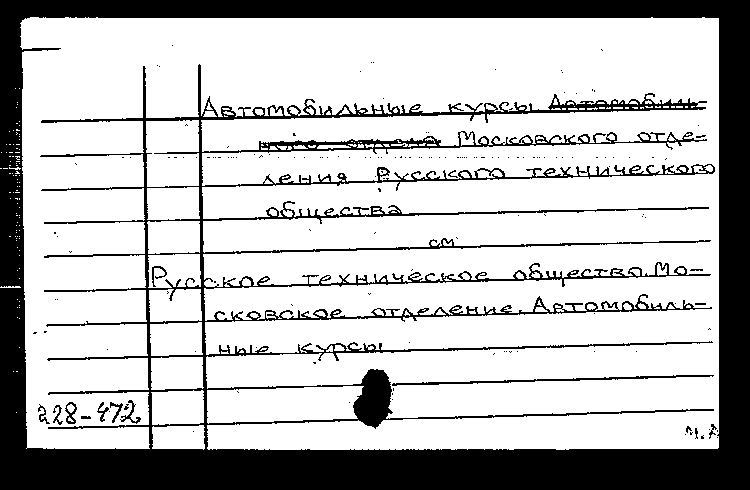 Автомобильные курсы ~~Автомобиль-~~
~~ного отдела~~ Московского отде-
ления Русского технического
общества
см
Русское техническое общество. Мо-
сковское отделение. Автомобиль-
ные курсы
228-472
М. А